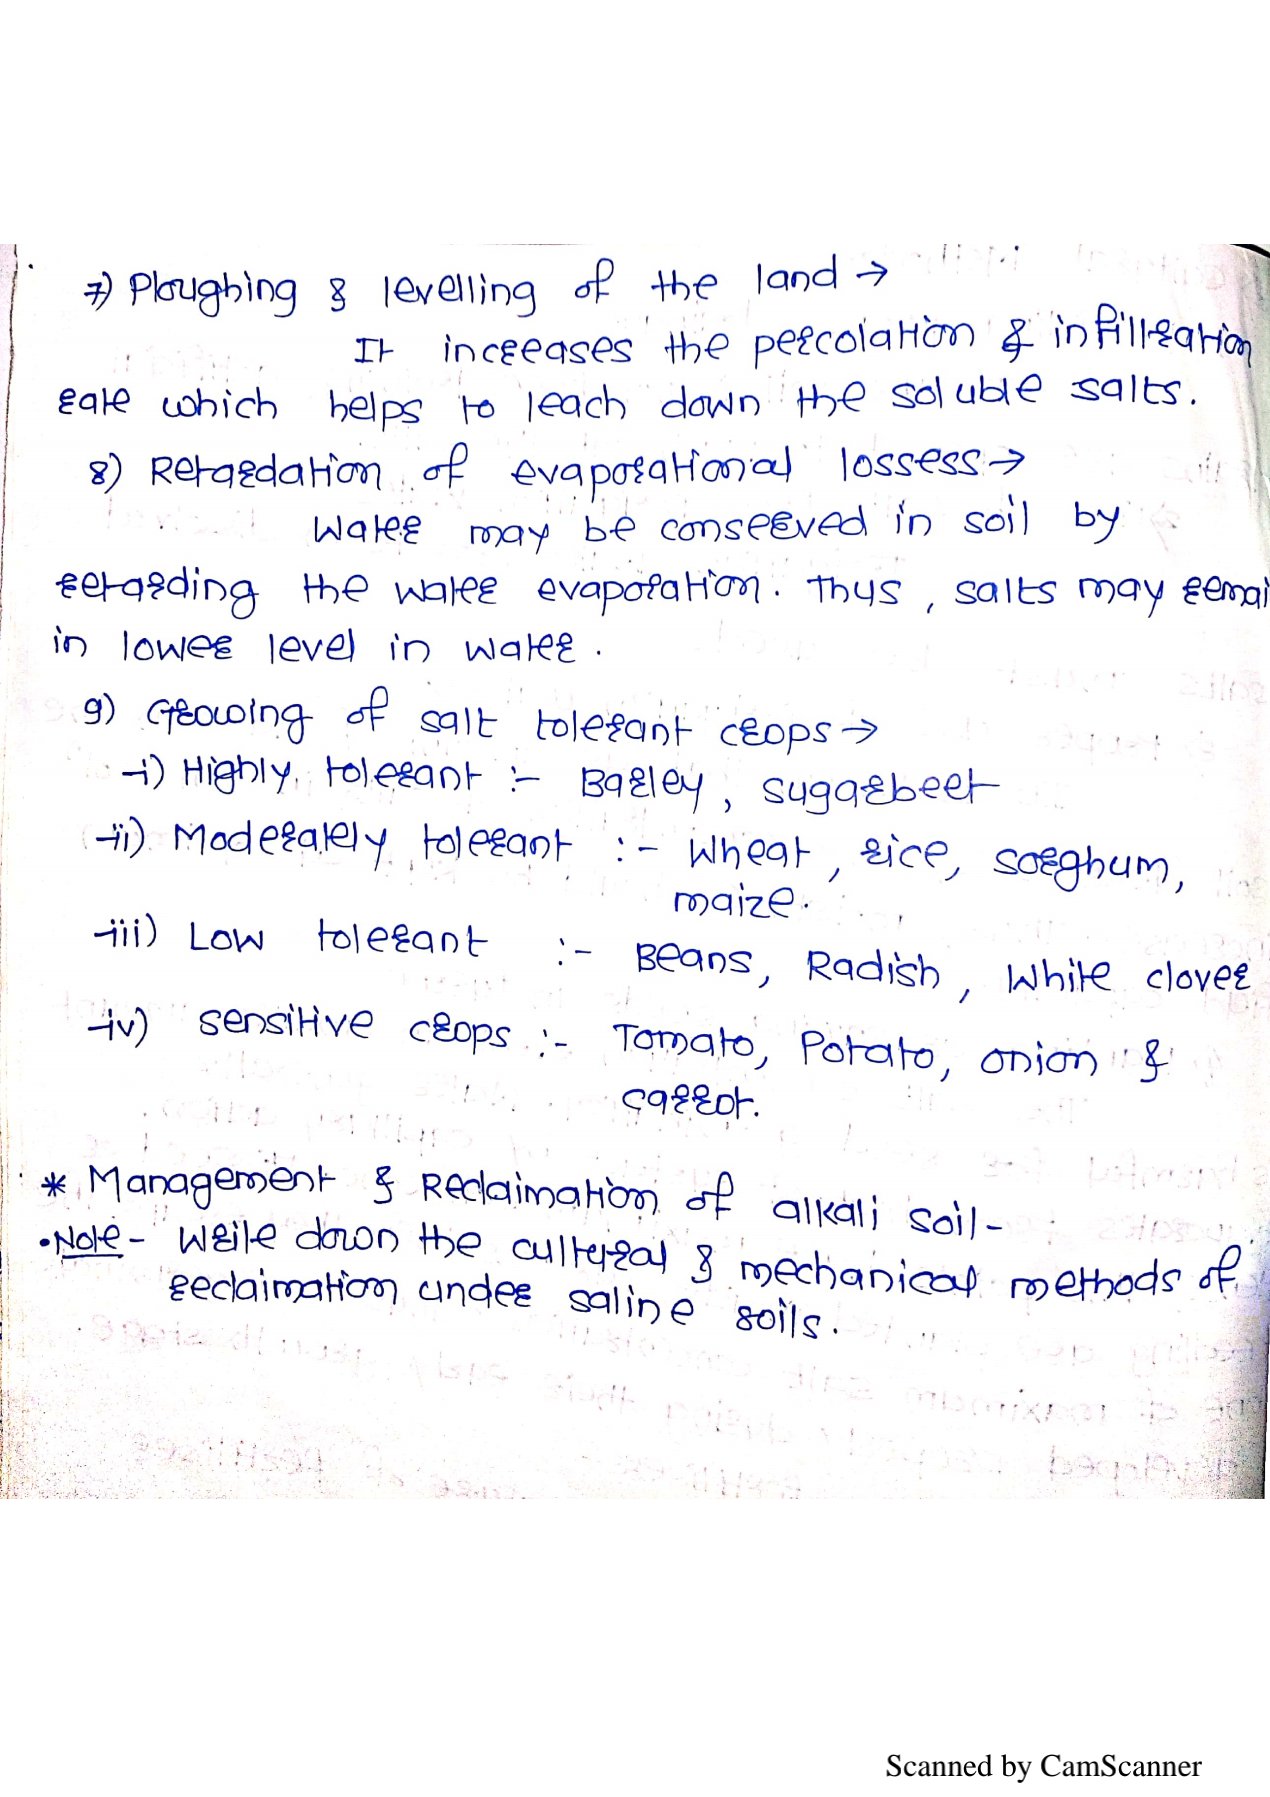 7) Ploughing & levelling of the land →
It increases the percolation & infillration
rate which helps to leach down the soluble salts.
8) Retardation of evaporational lossess →
Water may be conserved in soil by
retarding the water evaporation. Thus, salts may remai
in lower level in water.
9) Growing of salt tolerant crops →
i) Highly tolerant :- Barley, sugarbeet
ii) Moderately tolerant :- Wheat, rice, sorghum,
maize.
iii) Low tolerant :- Beans, Radish, White clover
iv) Sensitive crops :- Tomato, Potato, onion &
carrot.
* Management & Reclaimation of alkali soil-
• Note - Write down the cultural & mechanical methods of
reclaimation under saline soils.
Scanned by CamScanner